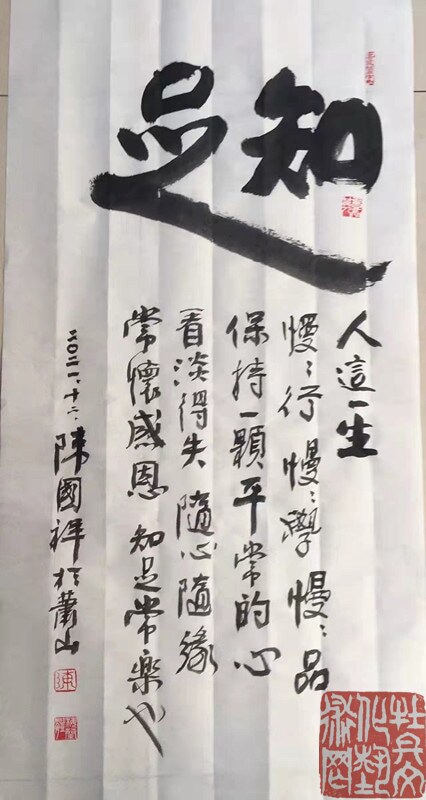 知足
人這一生
慢慢行 慢慢學 慢慢品
保持一顆平常的心
看淡得失 隨心隨緣
常懷感恩 知足常樂也
二〇二一、十二、陳國祥於蕭山